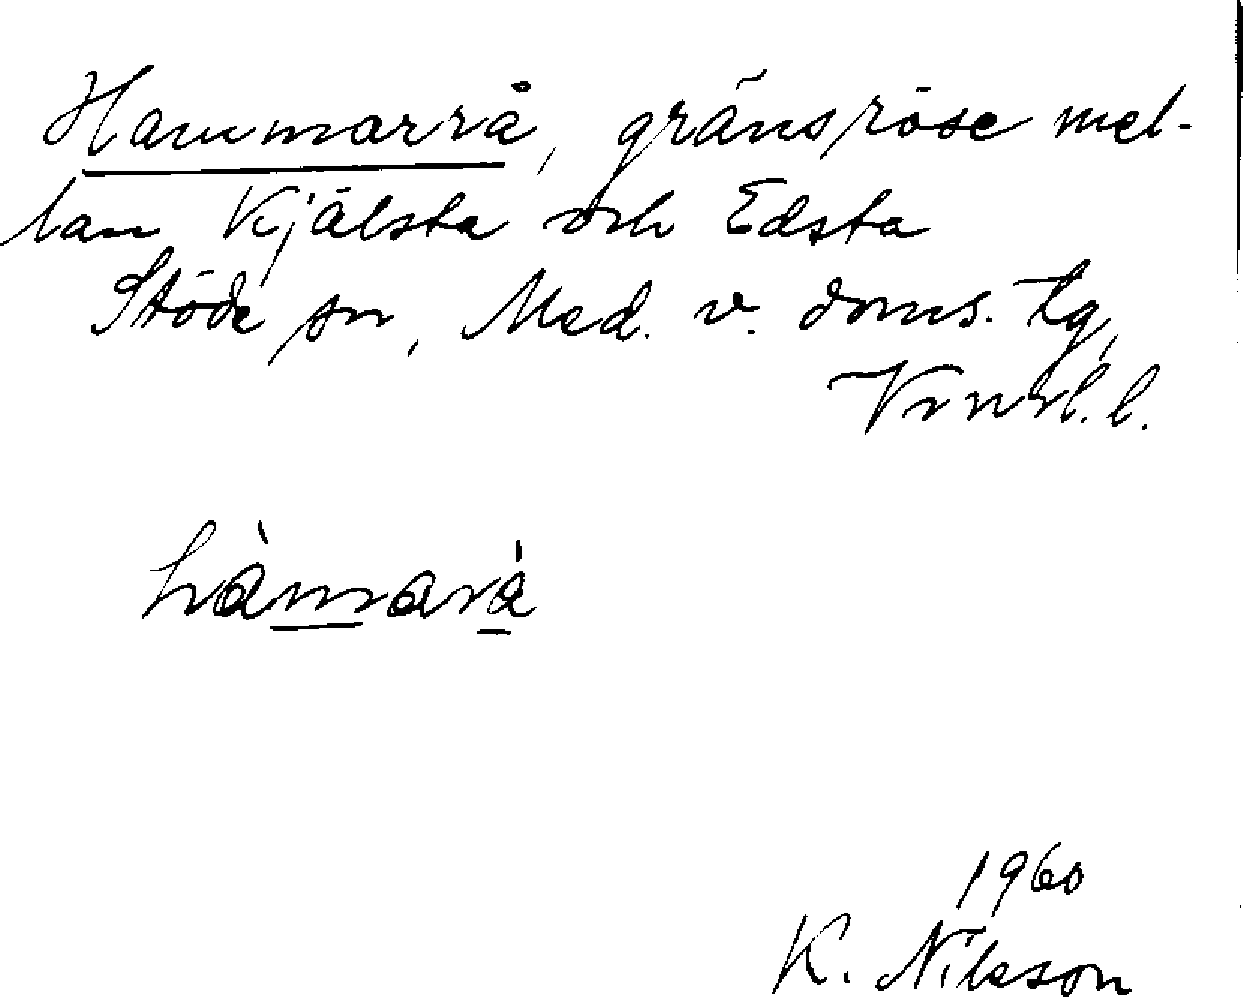 Hammarrå, gränsröse mel-
lan Kjälsta och Edsta
Stöde sn, Med. v. doms. tg,
Vrnrl. l.
hàmarå̀
1960
K. Nilsson